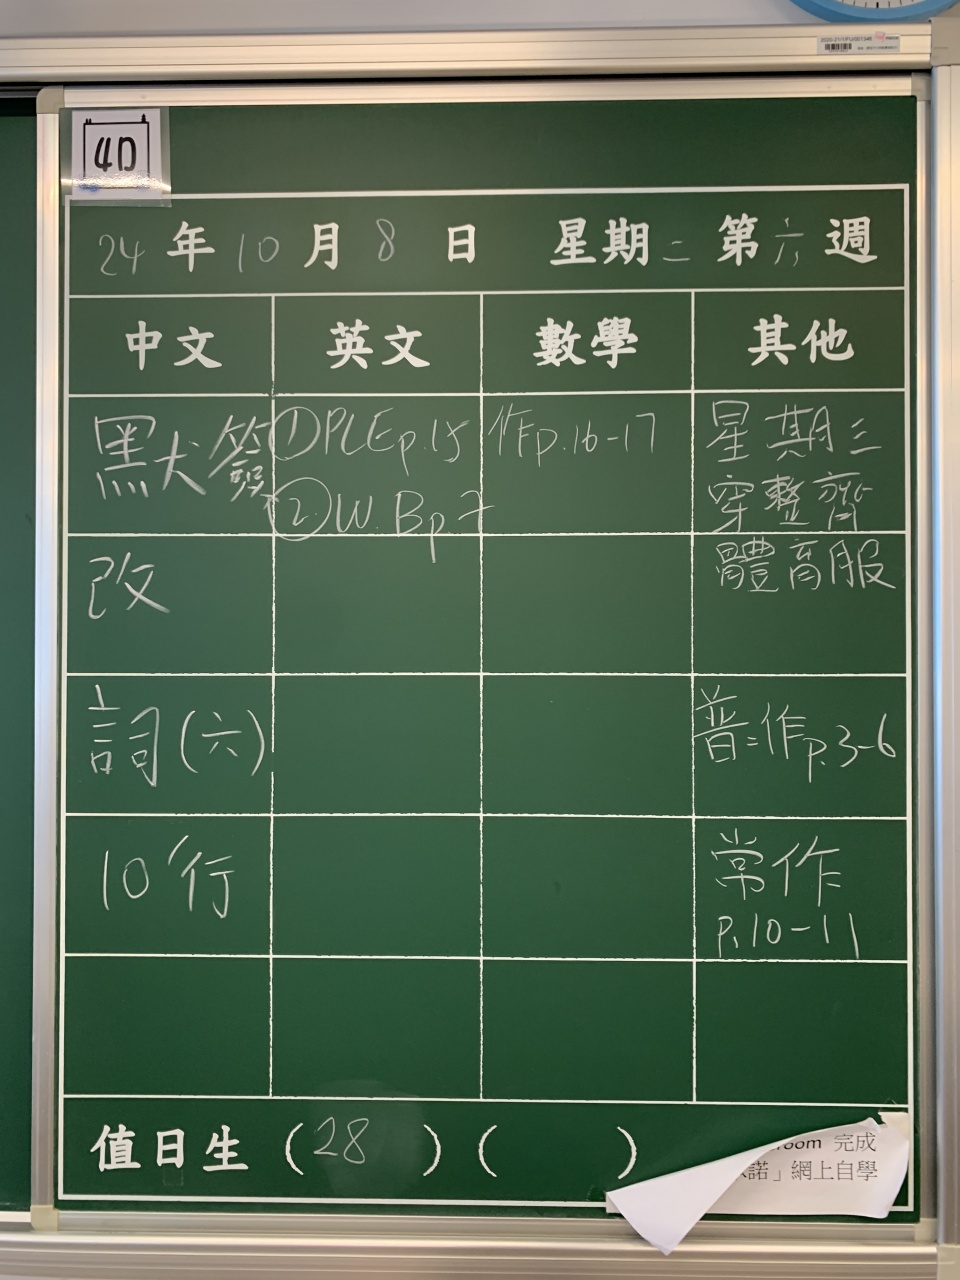 4D
24年10月8日 星期二 第六週
中文 英文 數學 其他
默犬簽 ①PLE p.15 作p.16-17 星期三
②W.B p7 穿整齊
改 體育服
詞(六) 普=作p.3-6
10'行 常作
p.10-11
值日生 (28) ( )
room 完成
諾」網上自學